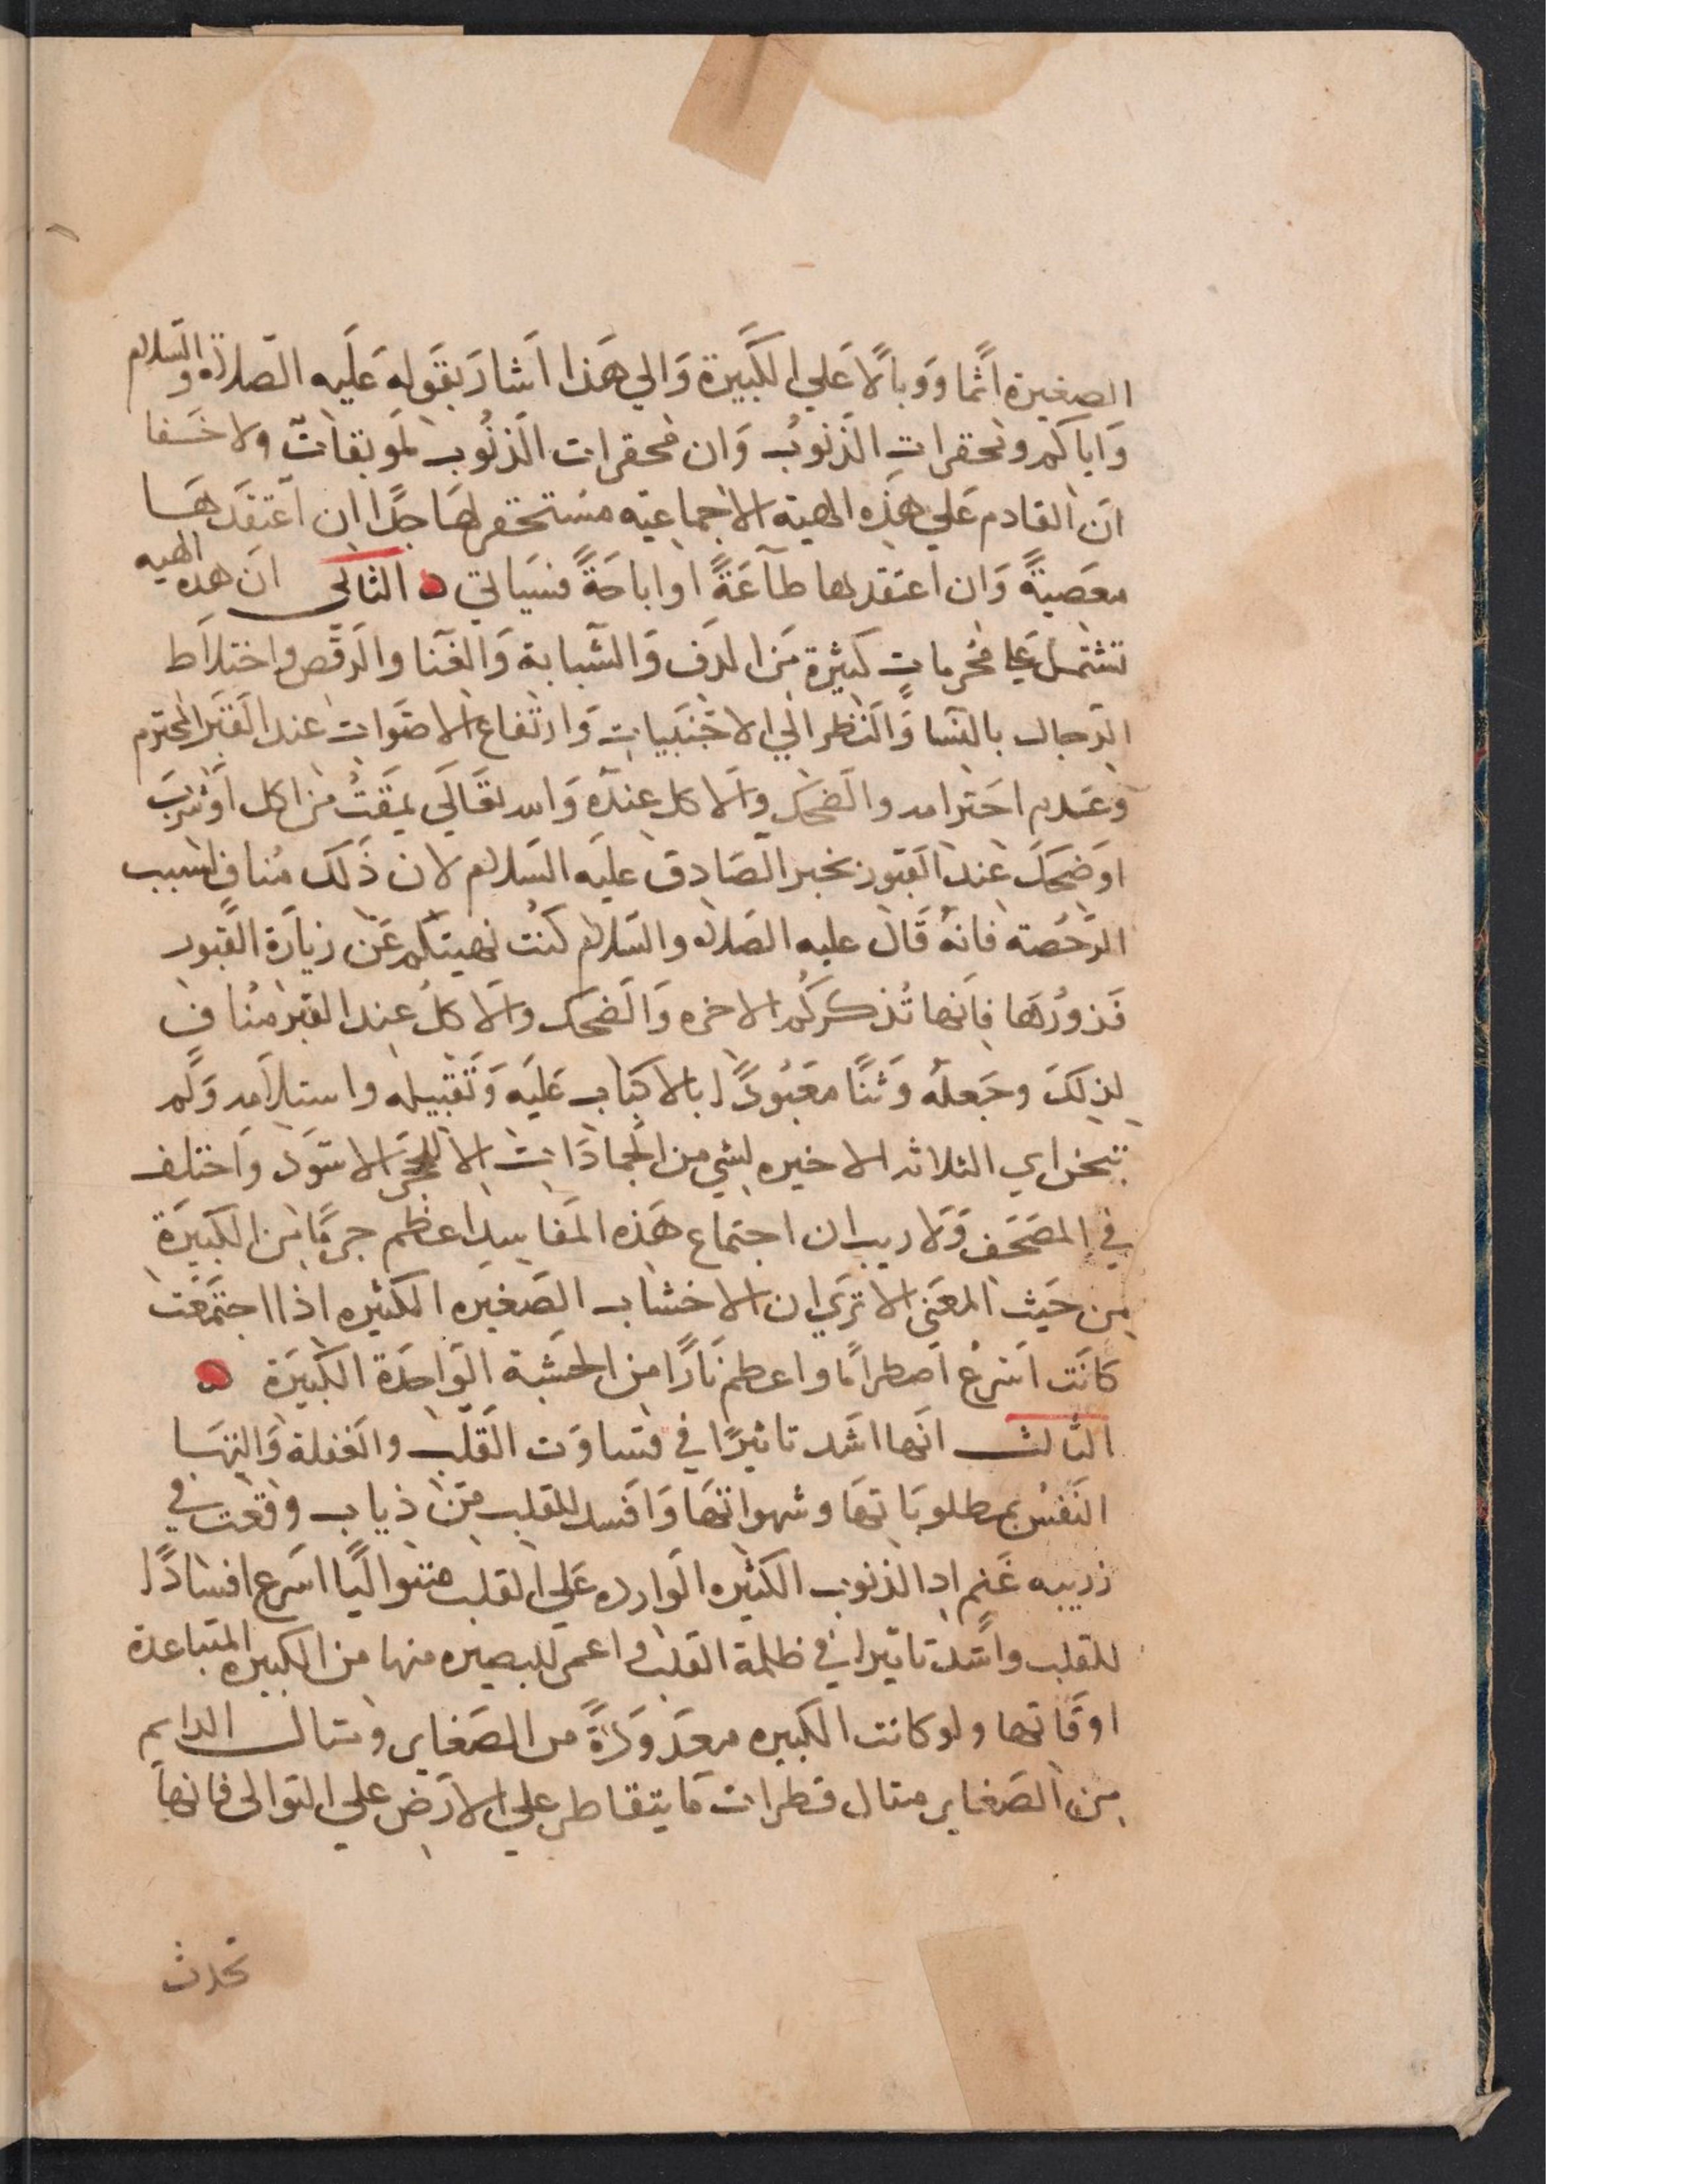 الصغيرة اثما ووبالا علي الكبيرة والي هذا اشار بقوله عليه الصلاة والسلام
واياكم ومحقرات الذنوب وان محقرات الذنوب لموبقات ولا خفا
ان القادم علي هذه الهية الاجماعية مستحقر لها جدا ان اعتقدها
معصية وان اعتقدها طاعة او اباحة فسياتي الثاني ان هذه الهيه
تشتمل علي محرمات كثيرة من الدف والشبابة والغنا والرقص واختلاط
الرجال بالنسا والنظر الي الاجنبيات وارتفاع الاصوات عند القبر المحترم
وعدم احترامه والضحك والاكل عنده والله تعالي يمقت من اكل اوشرب
اوضحك عند القبور بخبر الصادق عليه السلام لان ذلك مناف لسبب
الرخصة فانه قال عليه الصلاة والسلام كنت نهيتكم عن زيارة القبور
فزورها فانها تذكركم الاخره والضحك والاكل عند القبر مناف
لذلك وجعله وثنا معبودا بالاكباب عليه وتقبيله واستلامه ولم
تبح اي الثلاثه الاخيره لشي من الجمادات الا للحجر الاسود واختلف
في المصحف ولا ريب ان اجتماع هذه المفاسد اعظم جرما من الكبيرة
من حيث المعني الا تري ان الاخشاب الصغيره الكثيره اذا اجتمعت
كانت اسرع اضطراما واعظم نارا من الخشبة الواحدة الكبيرة
الثالث انها اشد تاثيرا في قساوت القلب والغفلة والتها
النفس بمطلوباتها وشهواتها وافسد للقلب من ذياب وقعت في
زريبه غنم اد الذنوب الكثيره الوارده علي القلب متواليا اسرع افسادا
للقلب واشد تاثيرا في ظلمة القلب واعمي للبصيره منها من الكبيره المتباعدة
اوقاتها ولو كانت الكبيره معدودة من الصغاير ومثال الدايم
من الصغاير مثال قطرات ما يتقاطر علي الارض علي التوالي فانها
تحدث